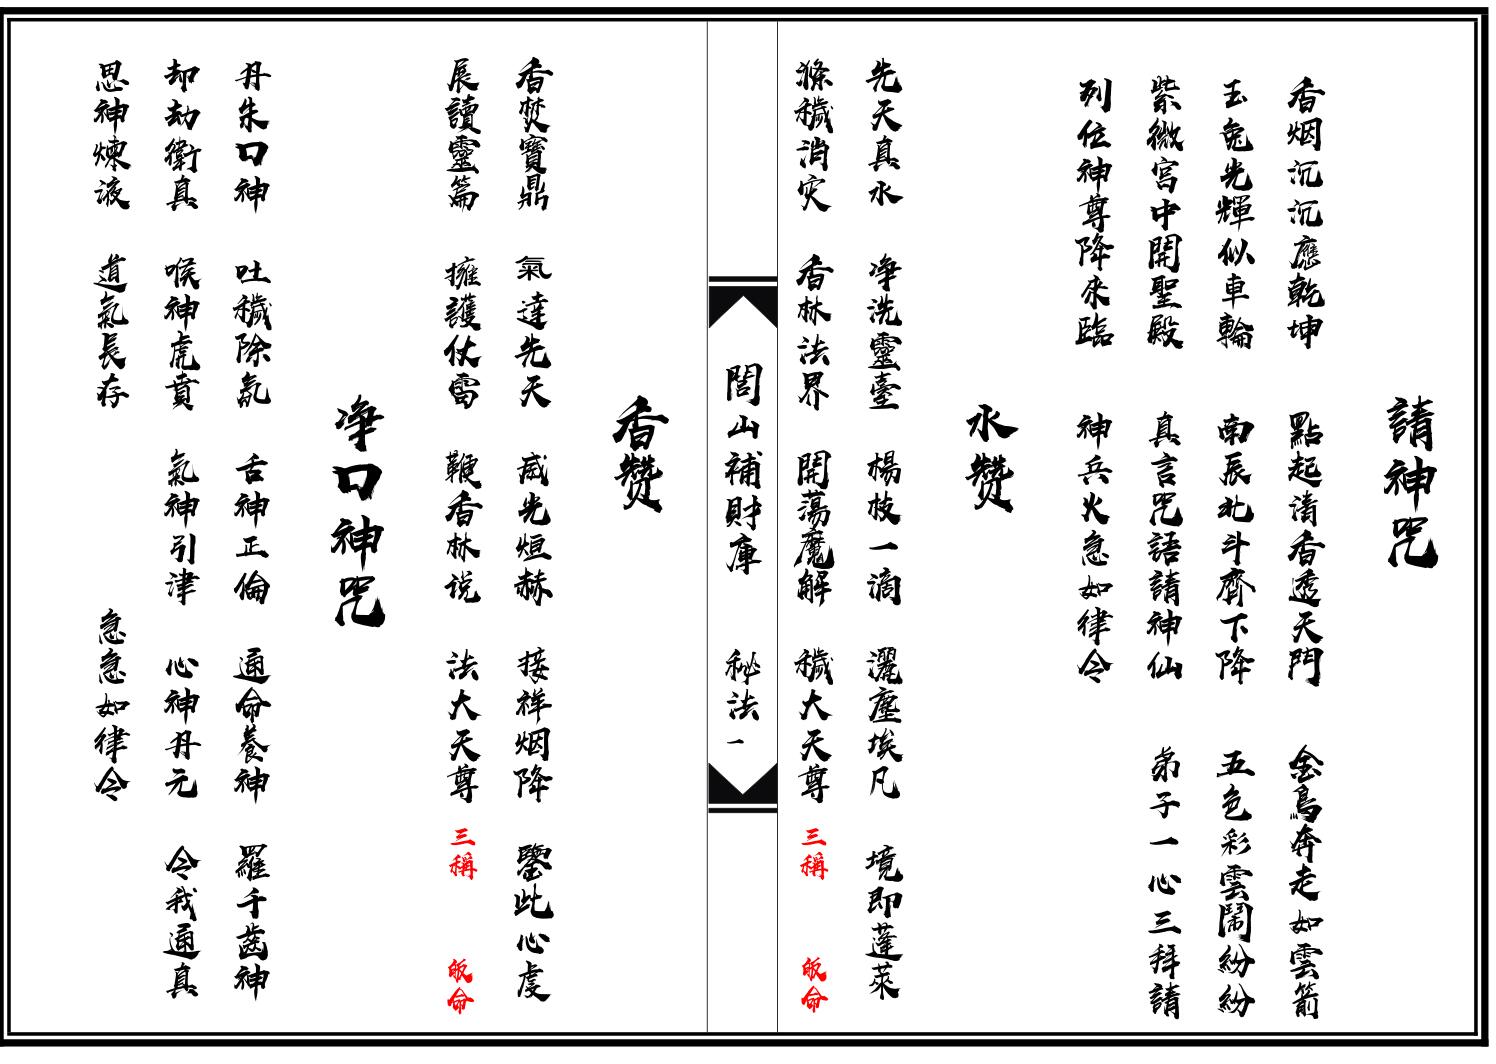 請神咒
香烟沉沉應乾坤 點起清香透天門 金鳥奔走如雲箭
玉兔光輝似車輪 南辰北斗齊下降 五色彩雲鬧紛紛
紫微宮中開聖殿 真言咒語請神仙 弟子一心三拜請
列位神尊降來臨 神兵火急如律令
水赞
先天真水 净洗靈臺 楊枝一滴 灑塵埃凡 境即蓬萊
滌穢消灾 香林法界 開蕩魔解 穢大天尊 三稱 皈命
閭山補財庫 秘法一
香赞
香焚寶鼎 氣達先天 威光烜赫 接祥烟降 鑒此心虔
展讀靈篇 擁護仗雷 鞭香林说 法大天尊 三稱 皈命
净口神咒
丹朱口神 吐穢除氣 舌神正倫 通命養神 羅千齒神
却劫衛真 喉神虎賁 氣神引津 心神丹元 令我通真
思神煉液 道氣長存 急急如律令